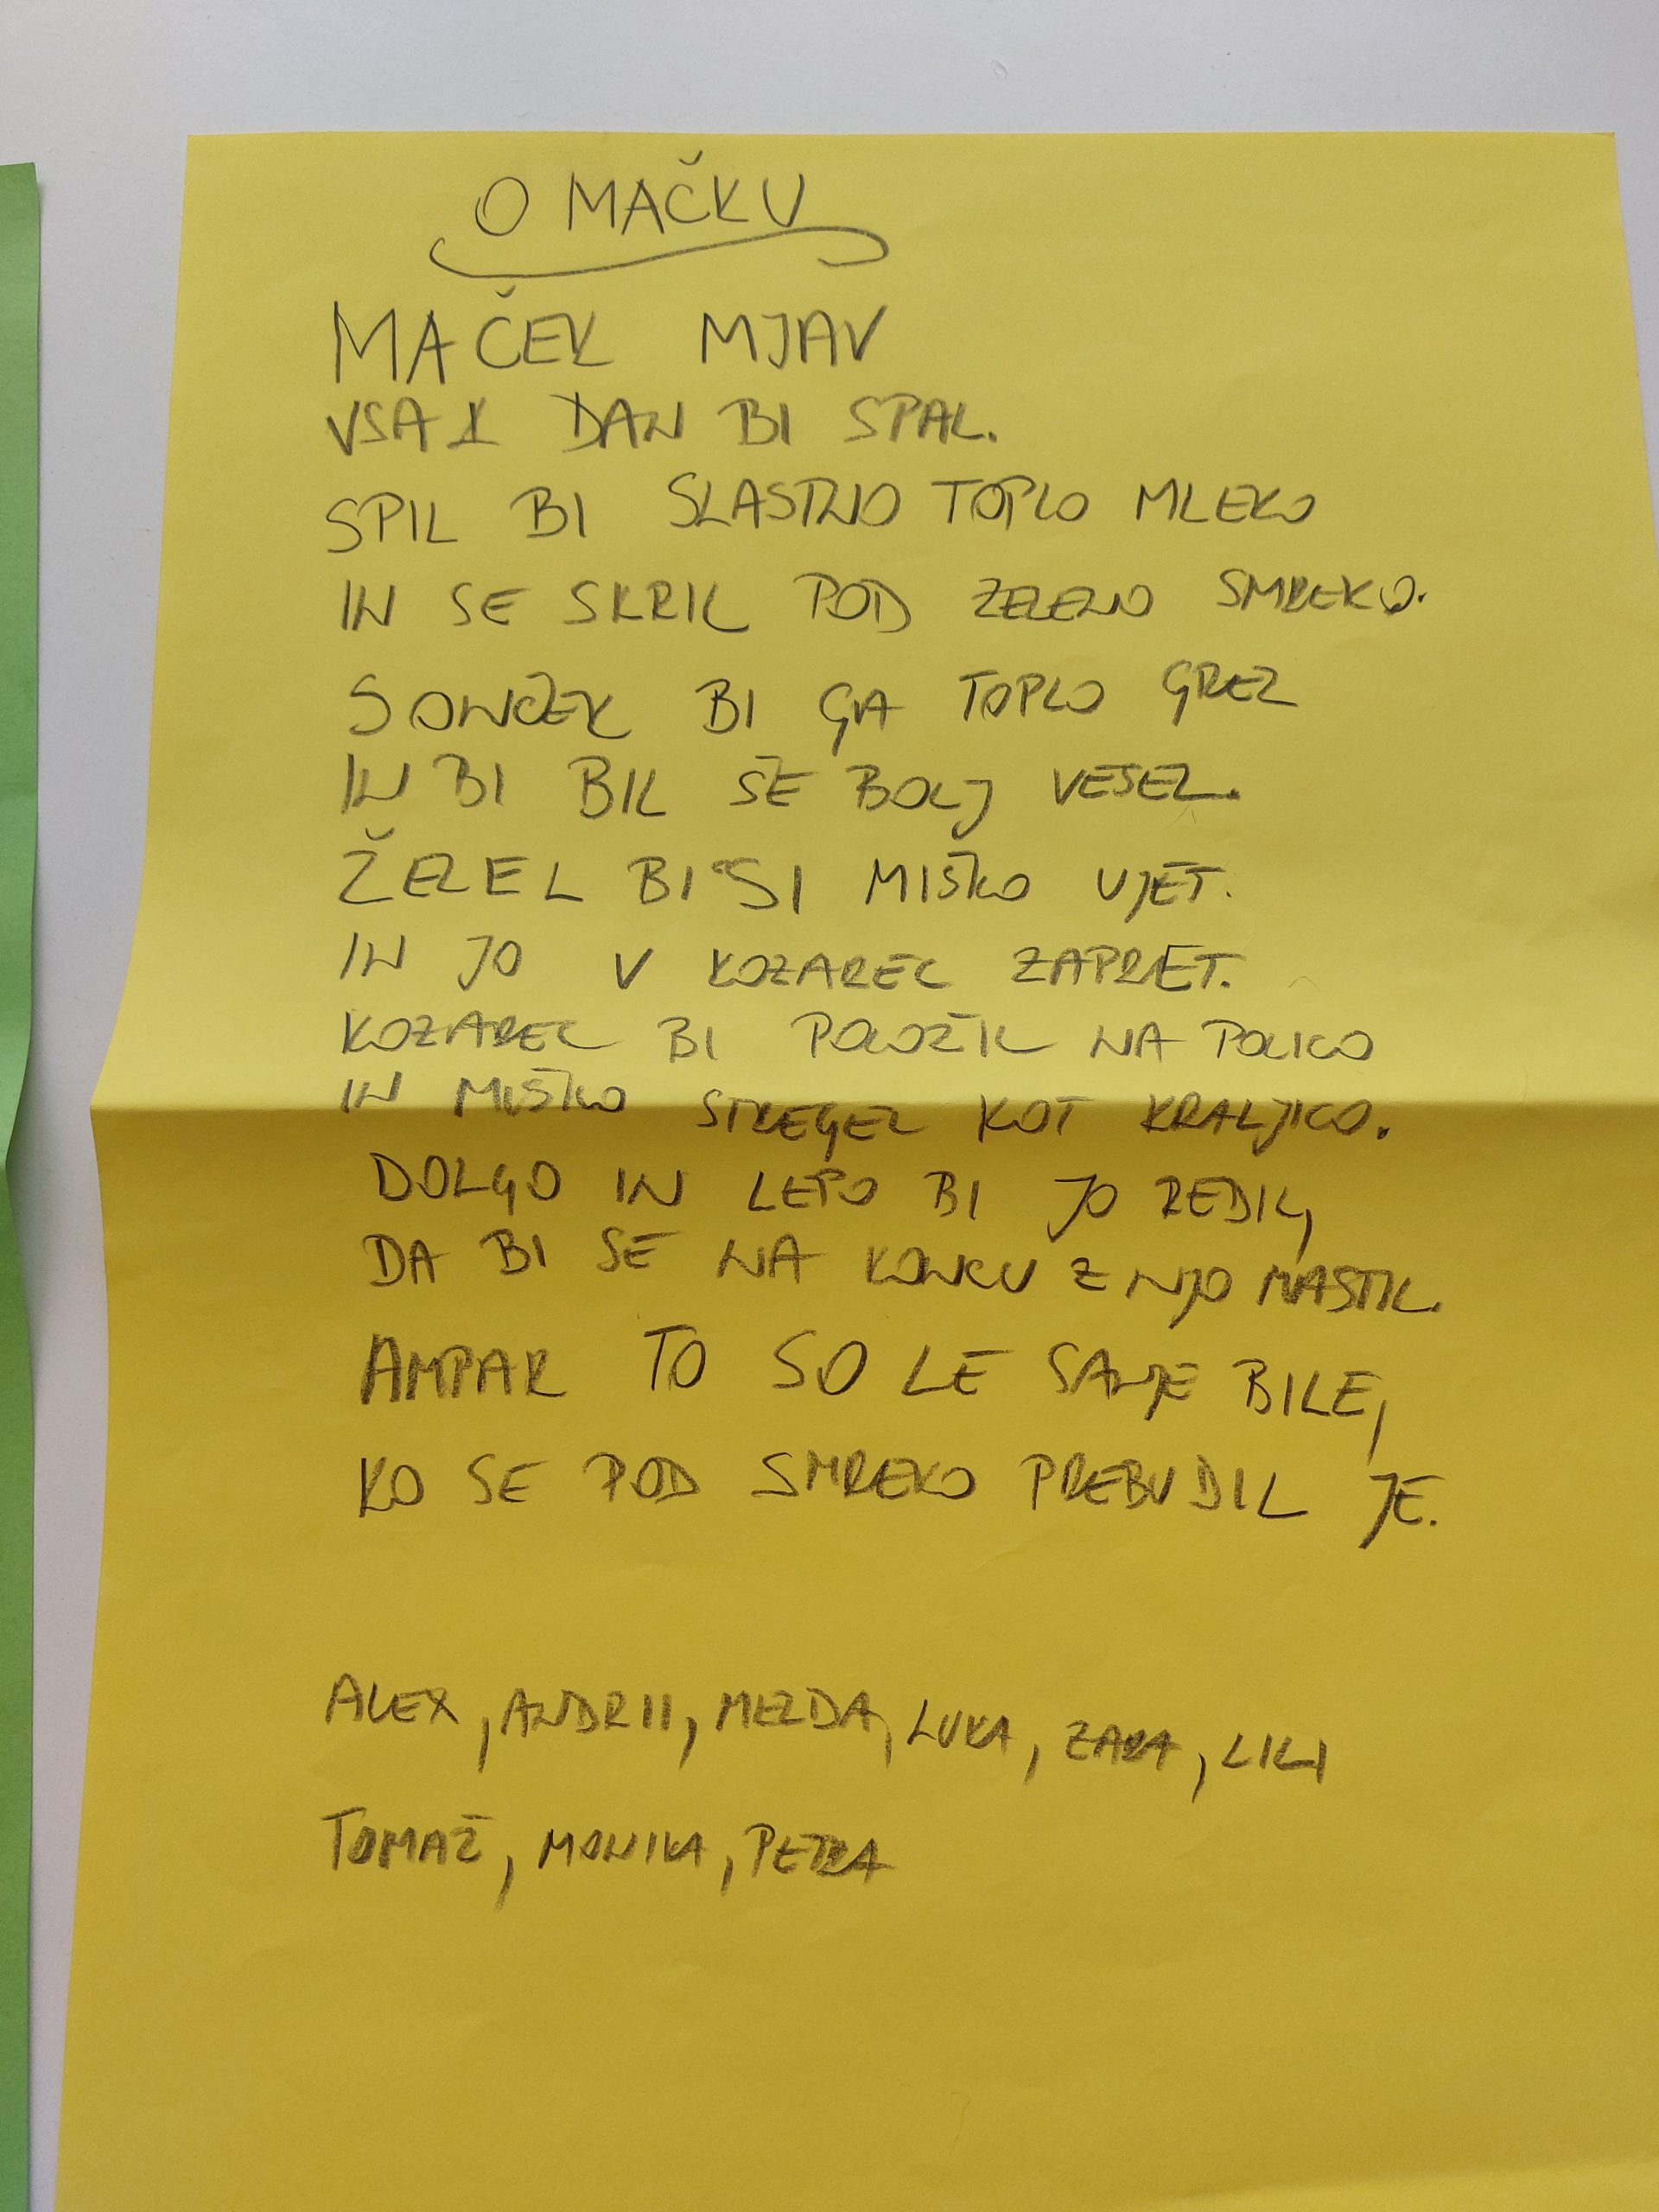 O MAČKU
MAČEK MJAV
VSAK DAN BI SPAL.
SPIL BI SLASTNO TOPLO MLEKO
IN SE SKRIL POD ZELENO SMREKO.
SONČEK BI GA TOPLO GREL
IN BI BIL ŠE BOLJ VESEL.
ŽELEL BI SI MIŠKO UJET.
IN JO V KOZAREC ZAPRET.
KOZAREC BI POLOŽIL NA POLICO
IN MIŠKO STREGEL KOT KRALJICO.
DOLGO IN LEPO BI JO REDIL,
DA BI SE NA KONCU Z NJO MASTIL.
AMPAK TO SO LE SANJE BILE,
KO SE POD SMREKO PREBUDIL JE.
ALEX, ANDRII, LUKA, ZARA, LILI
TOMAŽ, MONIKA, PETRA